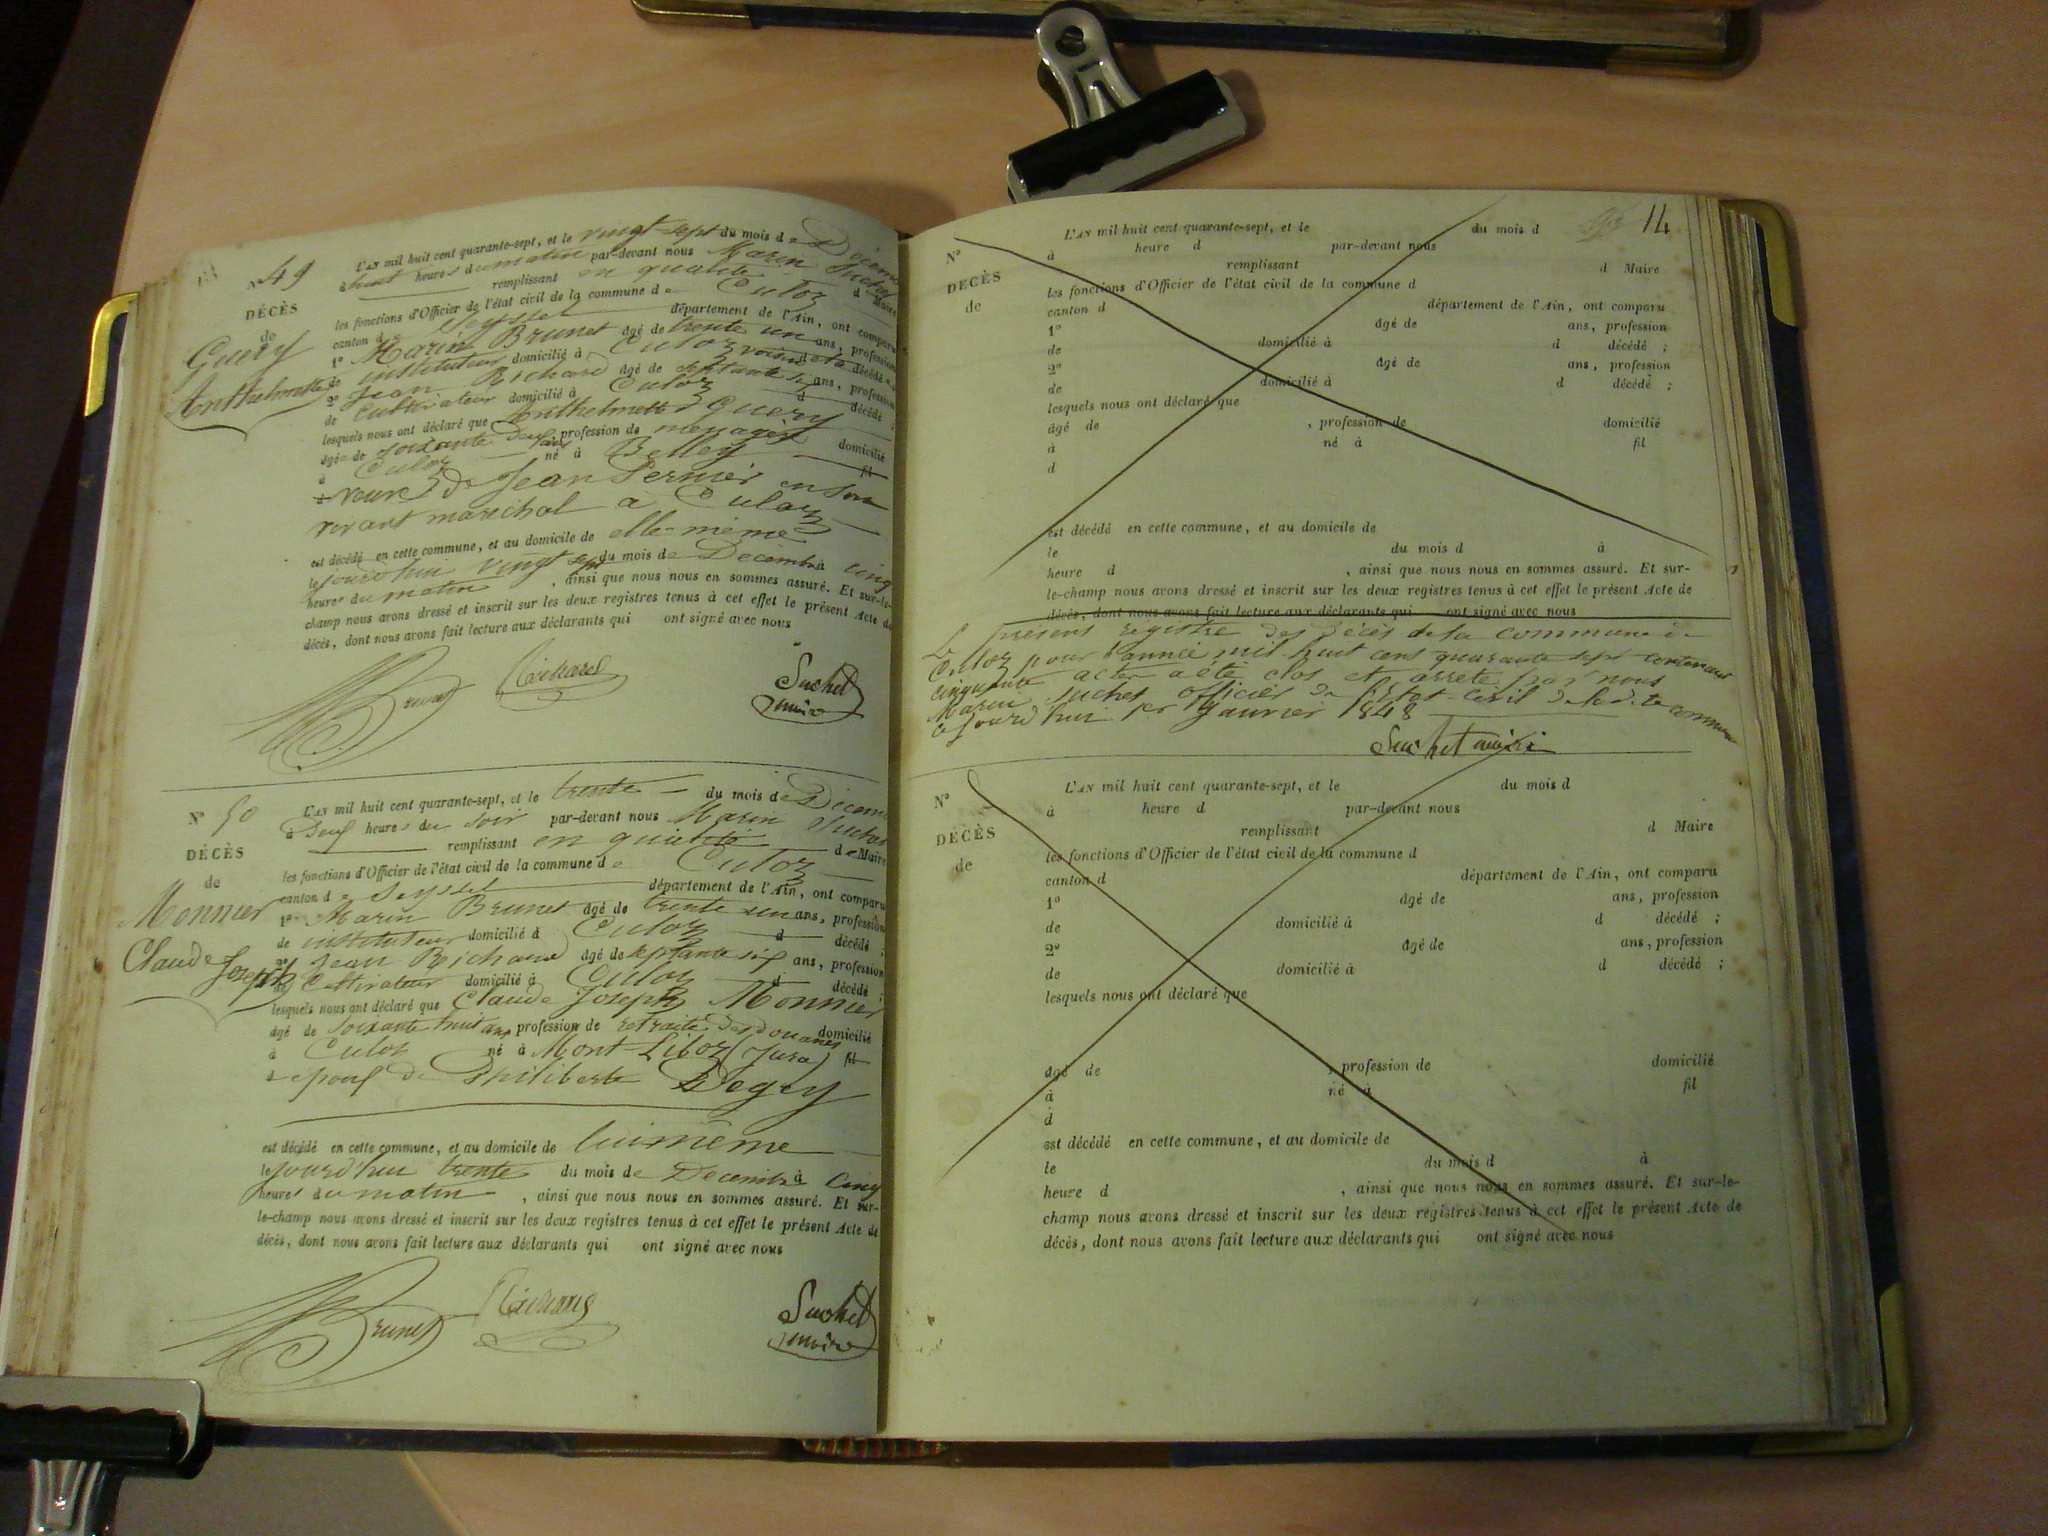 N° 49
DÉCÈS
de
Guery
Anthelmette
L'AN mil huit cent quarante-sept, et le vingt sept du mois de Décem
huit heures du matin par-devant nous Marin Suchet
remplissant en qualité d Maire
les fonctions d'Officier de l'état civil de la commune de Culoz
canton de Seyssel département de l'Ain, ont comparu
1° Marin Brunet âgé de trente un ans, profession
de instituteur domicilié à Culoz voisin de la décédée
2° Jean Richard âgé de septante six ans, profession
de Cultivateur domicilié à Culoz d décédé ;
lesquels nous ont déclaré que Anthelmette Guery
âgée de soixante deux ans profession de ménagère domicilié
à Culoz né à Belley fil
veuve de Jean Pernier en son
vivant maréchal à Culoz
est décédé en cette commune, et au domicile de elle-même
le jourd'hui vingt sept du mois de Décembre à cinq
heures du matin , ainsi que nous nous en sommes assuré. Et sur-le-
champ nous avons dressé et inscrit sur les deux registres tenus à cet effet le présent Acte de
décès, dont nous avons fait lecture aux déclarants qui ont signé avec nous
Brunet Richard Suchet
maire
N° 50
DÉCÈS
de
Monnier
Claude Joseph
L'AN mil huit cent quarante-sept, et le trente du mois de Décem
à Deux heures du soir par-devant nous Marin Suchet
remplissant en qualité de Maire
les fonctions d'Officier de l'état civil de la commune de Culoz
canton de Seyssel département de l'Ain, ont comparu
1° Marin Brunet âgé de trente un ans, profession
de instituteur domicilié à Culoz d décédé ;
2° Jean Richard âgé de septante six ans, profession
de Cultivateur domicilié à Culoz d décédé ;
lesquels nous ont déclaré que Claude Joseph Monnier
âgé de soixante huit ans profession de retraité des douanes domicilié
à Culoz né à Mont-Liboz (Jura) fil
époux de Philiberte Degey
est décédé en cette commune, et au domicile de lui même
le jourd'hui trente du mois de Décembre à cinq
heures du matin , ainsi que nous nous en sommes assuré. Et sur-
le-champ nous avons dressé et inscrit sur les deux registres tenus à cet effet le présent Acte de
décès, dont nous avons fait lecture aux déclarants qui ont signé avec nous
Brunet Richard Suchet
maire
14
N°
DÉCÈS
de
L'AN mil huit cent quarante-sept, et le du mois d
à heure d par-devant nous
remplissant d Maire
les fonctions d'Officier de l'état civil de la commune d
canton d département de l'Ain, ont comparu
1° âgé de ans, profession
de domicilié à d décédé ;
2° âgé de ans, profession
de domicilié à d décédé ;
lesquels nous ont déclaré que
âgé de , profession de domicilié
à né à fil
d
est décédé en cette commune, et au domicile de
le du mois d à
heure d , ainsi que nous nous en sommes assuré. Et sur-
le-champ nous avons dressé et inscrit sur les deux registres tenus à cet effet le présent Acte de
décès, dont nous avons fait lecture aux déclarants qui ont signé avec nous
Le présent registre des décès de la commune de
Culoz pour l'année mil huit cent quarante sept contenant
cinquante actes a été clos et arrêté par nous
Marin Suchet officier de l'Etat-civil de la dite commune
ce jourd'hui 1er Janvier 1848
Suchet maire
N°
DÉCÈS
de
L'AN mil huit cent quarante-sept, et le du mois d
à heure d par-devant nous
remplissant d Maire
les fonctions d'Officier de l'état civil de la commune d
canton d département de l'Ain, ont comparu
1° âgé de ans, profession
de domicilié à d décédé ;
2° âgé de ans, profession
de domicilié à d décédé ;
lesquels nous ont déclaré que
âgé de , profession de domicilié
à né à fil
d
est décédé en cette commune, et au domicile de
le du mois d à
heure d , ainsi que nous nous en sommes assuré. Et sur-le-
champ nous avons dressé et inscrit sur les deux registres tenus à cet effet le présent Acte de
décès, dont nous avons fait lecture aux déclarants qui ont signé avec nous